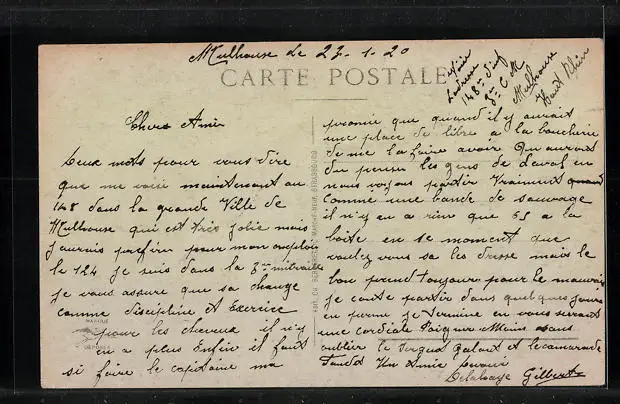 Mulhouse le 23-1-20
CARTE POSTALE
148e Inf
3e C M
Mulhouse
Haut Rhin
Chers Amis
Deux mots pour vous dire
que me voir maintenant au
148 dans la grande Ville de
Mulhouse qui est très jolie mais
jaurais préféré pour mon
le 124 je suis dans la 3me mitraille
je vous assure que sa change
comme discipline et Exercice
pour les cheveux il n'y
en a plus Enfin il faut
si faire le capitaine ma
promie que quand il y aurait
une place de libre a la boucherie
de me la faire avoir Qu aurait
du penser les gens de Laval en
nous voyons partir Vraiment
comme une bande de sauvage
il n'y en a rien que 65 a la
boite en se moment que
voulez vous sa les dresse mais le
bon prend toujours pour le mauvais
je conte partir dans quelques jours
en perme je termine en vous serrant
une cordiale Poigner Mains sans
oublier le Galant et le camarade
Un Amie
Gilbert